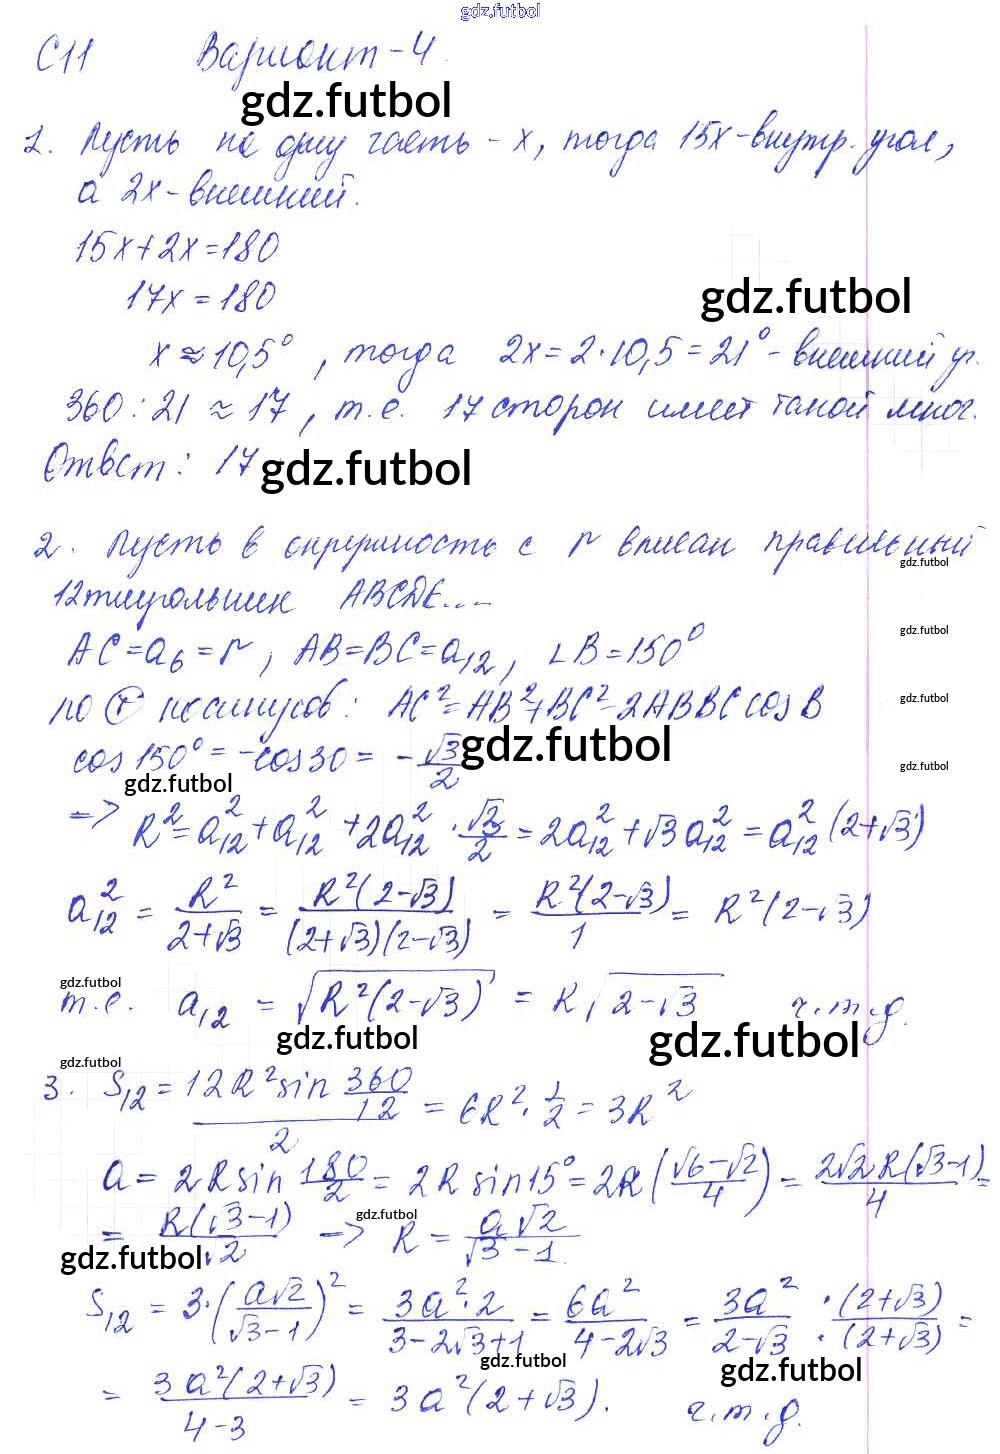 gdz.futbol
С11 Вариант-4.
gdz.futbol
1. Пусть на одну часть - x, тогда 15x-внутр. угол,
а 2x-внешний.
15x+2x=180
17x=180
gdz.futbol
x≈10,5°, тогда 2x=2·10,5=21°-внешний уг.
360:21≈17, т.е. 17 сторон имеет такой мног.
Ответ: 17
gdz.futbol
2. Пусть в окружность с r вписан правильный
gdz.futbol
12тиугольник ABCDE...-
gdz.futbol
AC=a₆=r, AB=BC=a₁₂, ∠B=150°
gdz.futbol
по Ⓣ косинусов: AC²=AB²+BC²-2ABBC cosB
gdz.futbol
cos150°=-cos30=-√3/2
gdz.futbol
gdz.futbol
=> R²=a₁₂²+a₁₂²+2a₁₂²·√2/2=2a₁₂²+√3a₁₂²=a₁₂²(2+√3)
a₁₂²=R²/(2+√3)=R²(2-√3)/((2+√3)(2-√3))=R²(2-√3)/1=R²(2-√3)
gdz.futbol
т.е. a₁₂=√(R²(2-√3))=R√(2-√3) ч.т.д.
gdz.futbol
gdz.futbol
gdz.futbol
3. S₁₂=(12R²sin 360/12)/2=6R²·1/2=3R²
a=2Rsin 180/2=2Rsin15°=2R((√6-√2)/4)=2√2R(√3-1)/4=
gdz.futbol
=R(√3-1)/√2 => R=a√2/(√3-1).
gdz.futbol
S₁₂=3·(a√2/(√3-1))²=3a²·2/(3-2√3+1)=6a²/(4-2√3)=3a²/(2-√3)·(2+√3)/(2+√3)=
gdz.futbol
gdz.futbol
=3a²(2+√3)/(4-3)=3a²(2+√3). ч.т.д.